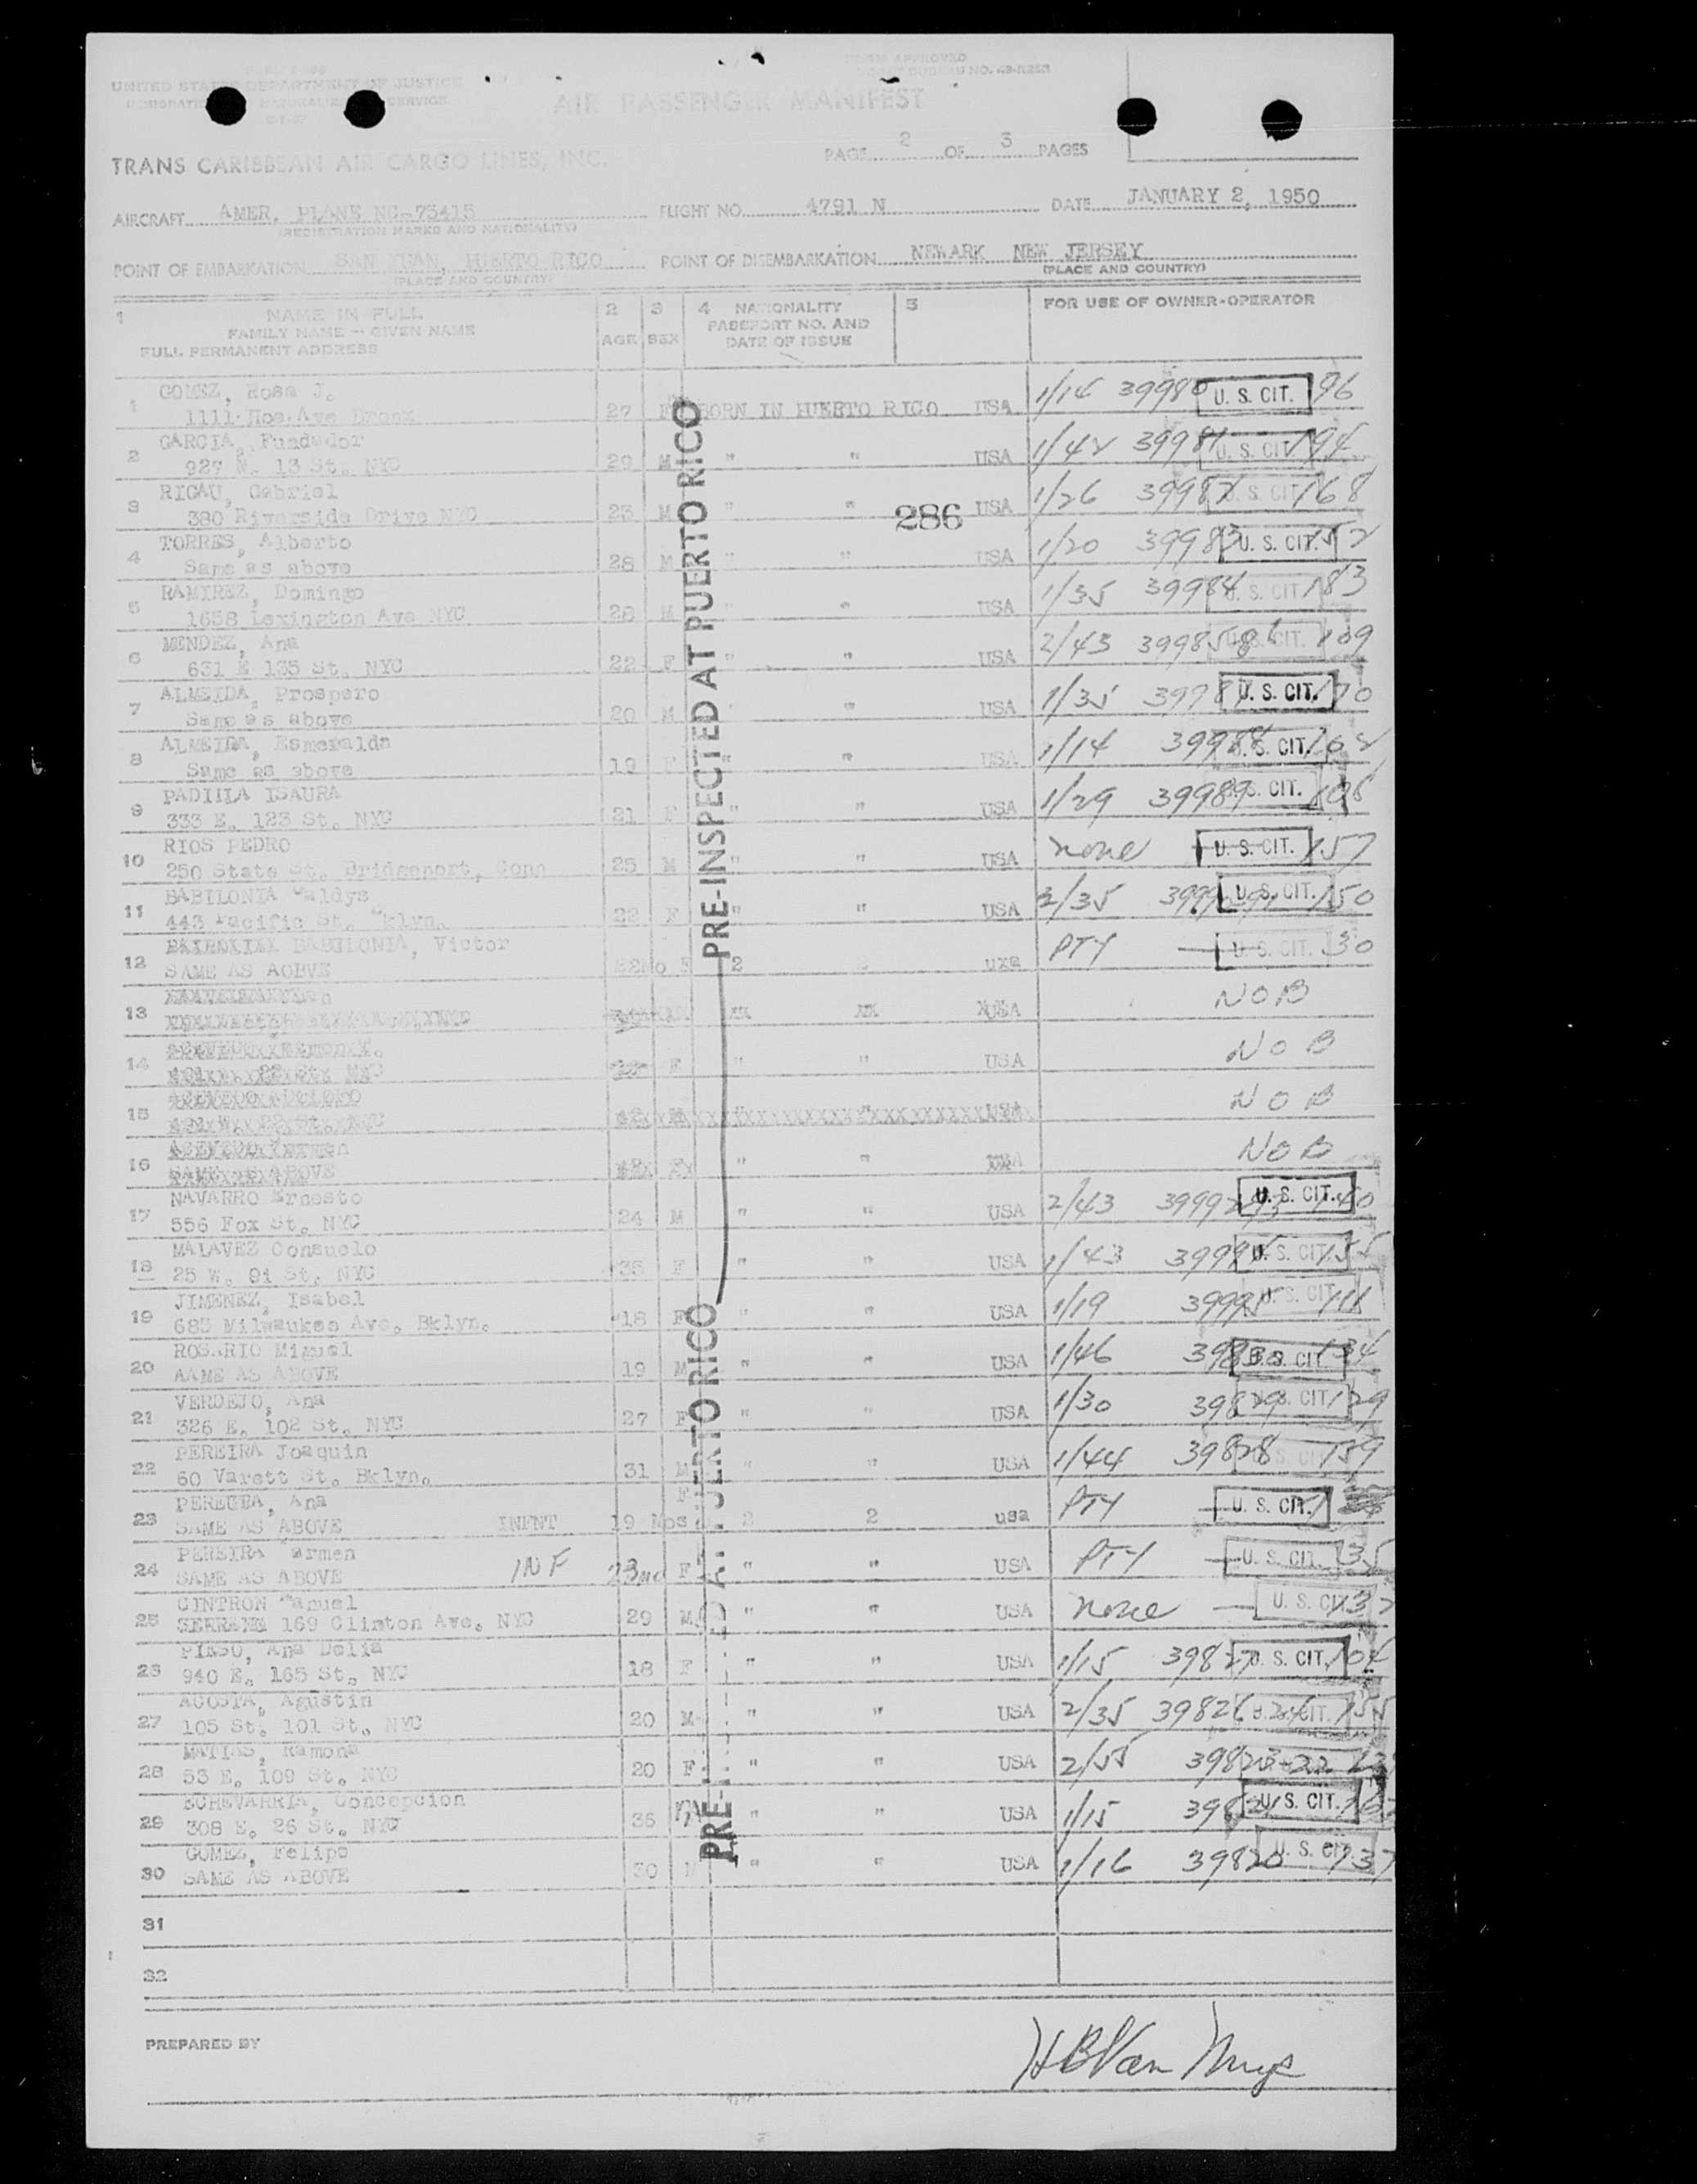 UNITED STATES DEPARTMENT OF JUSTICE
FORM APPROVED
AIR PASSENGER MANIFEST
TRANS CARIBBEAN AIR CARGO LINES, INC.
PAGE 2 OF 3 PAGES
AIRCRAFT AMER. PLANE NC-75415 FLIGHT NO. 4791 N DATE JANUARY 2, 1950
(REGISTRATION MARKS AND NATIONALITY)
POINT OF EMBARKATION SAN JUAN, PUERTO RICO POINT OF DISEMBARKATION NEWARK NEW JERSEY
(PLACE AND COUNTRY) (PLACE AND COUNTRY)
1 NAME IN FULL 2 3 4 NATIONALITY 5 FOR USE OF OWNER-OPERATOR
FAMILY NAME -- GIVEN NAME PASSPORT NO. AND
FULL PERMANENT ADDRESS AGE SEX DATE OF ISSUE
GOMEZ, Rosa J.
1 1111 Hoe Ave Bronx 27 F BORN IN PUERTO RICO USA 1/14 39980 U. S. CIT. 96
GARCIA, Fundador
2 927 N. 13 St. NYC 29 M " " USA 1/42 39981 U. S. CIT 194
RIGAU, Gabriel
3 380 Riverside Drive NYC 23 M " " 286 USA 1/26 39982 U. S. CIT 168
TORRES, Alberto
4 Same as above 28 M " " USA 1/20 39983 U. S. CIT. 152
RAMIREZ, Domingo
5 1658 Lexington Ave NYC 28 M " " USA 1/35 39984 U. S. CIT 183
MENDEZ, Ana
6 631 E 135 St. NYC 22 F " " USA 2/43 39985 86 U. S. CIT. 109
ALMEIDA, Prospero
7 Same as above 20 M " " USA 1/35 U. S. CIT. 170
ALMEIDA, Esmeralda
8 Same as above 19 F " " USA 1/14 39988 U. S. CIT.
PADILLA ISAURA
9 333 E. 123 St. NYC 21 F " " USA 1/29 39989 U. S. CIT.
RIOS PEDRO
10 250 State St. Bridgeport, Conn 25 M " " USA none U. S. CIT. 157
BABILONIA
11 443 Pacific St. Bklyn. 22 F " " USA 2/35 U. S. CIT. 150
BABILONIA, Victor
12 SAME AS AOBVE 2 uxa PTY U. S. CIT. 30
13 USA NOB
14 F " " USA NOB
15 " " NOB
16 " " NOB
NAVARRO Ernesto
17 556 Fox St. NYC 24 M " " USA 2/43 U. S. CIT.
MALAVEZ Consuelo
18 25 W. 91 St. NYC 35 F " " USA 1/43 39994 U. S. CIT 155
JIMENEZ, Isabel
19 685 Milwaukee Ave. Bklyn. 18 F " " USA 1/19 39995 U. S. CIT 111
ROSARIO Miguel
20 AAME AS ABOVE 19 M " " USA 1/46 39830 U. S. CIT. 134
VERDEJO, Ana
21 326 E. 102 St. NYC 27 F " " USA 1/30 39829 U. S. CIT 129
PEREIRA Joaquin
22 60 Varett St. Bklyn. 31 M " " USA 1/44 39828 U. S. CIT 159
PEREGIA, Ana
23 SAME AS ABOVE INFNT 19 Mos F 2 2 usa PTY U. S. CIT.
PEREIRA armen
24 SAME AS ABOVE INF 23mo F " " USA PTY U. S. CIT. 35
CINTRON anuel
25 169 Clinton Ave. NYC 29 M " " USA none U. S. CIT
PINSO, Ana Delia
26 940 E. 165 St. NYC 18 F " " USA 1/15 39827 U. S. CIT. 104
ACOSTA, Agustin
27 105 St. 101 St. NYC 20 M " " USA 2/35 39826 U. S. CIT. 155
MATIAS, Ramona
28 53 E. 109 St. NYC 20 F " " USA 2/55
ECHEVARRIA, Concepcion
29 308 E. 26 St. NYC 36 " " USA 1/15 39821 U. S. CIT.
GOMEZ, Felipe
30 SAME AS ABOVE 30 M " " USA 1/16 39820 U. S. CIT. 137
31
32
PRE-INSPECTED AT PUERTO RICO
PRE-INSPECTED AT PUERTO RICO
PREPARED BY